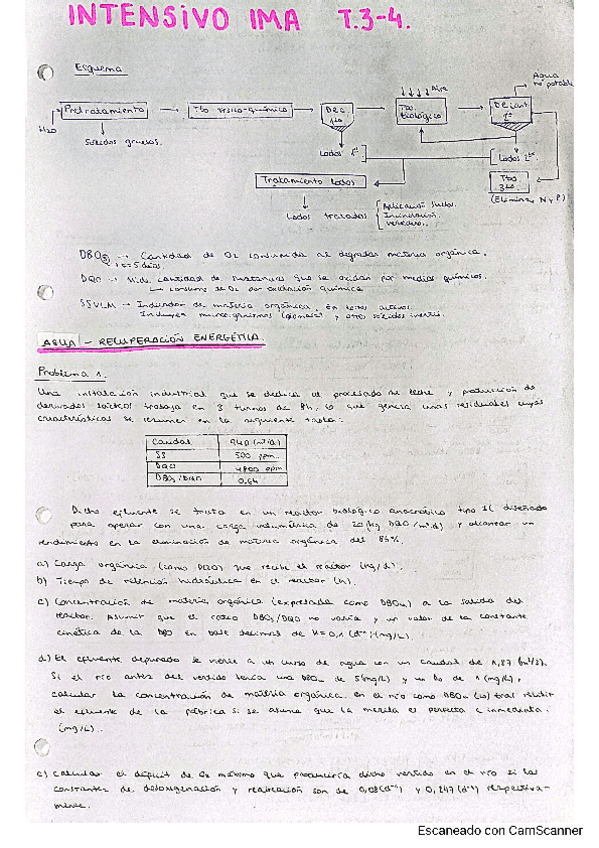 INTENSIVO IMA T.3-4.
Esquema
Aire
Agua no potable
Pretratamiento
Tto físico-químico
Dec 1rio
Tto. biológico
Decant 2º
H2O
Sólidos gruesos.
Lodos 1º
Lodos 2º.
Tto 3rio
(Eliminar N y P)
Tratamiento lodos
Lodos tratados
Aplicación suelos.
Incineración.
Vertedero.
DBO5 → Cantidad de O2 consumida al degradar materia orgánica.
t = 5 días
DQO → Mide cantidad de sustancias que se oxidan por medios químicos.
consumo de O2 por oxidación química
SSVLM → Indicador de materia orgánica, en lodos activos.
Incluyen microorganismos y otros sólidos inertes.
AGUA - RECUPERACIÓN ENERGÉTICA.
Problema 1.
Una instalación industrial que se dedica al procesado de leche y producción de
derivados lácteos trabaja en 3 turnos de 8h, lo que genera unas residuales cuyas
características se resumen en la siguiente tabla:
Caudal 940 (m³/d)
SS 500 ppm
DQO 4800 ppm
DBO5/DQO 0,64
Dicho efluente se trata en un reactor biológico anaeróbico tipo diseñado
para operar con una carga volumétrica de (kg DQO/m³.d) y alcanzar un
rendimiento en la eliminación de materia orgánica del 85%.
a) Carga orgánica (como DQO) que recibe el reactor (kg/d).
b) Tiempo de retención hidráulica en el reactor (h).
c) Concentración de materia orgánica (expresada como DBOu) a la salida del
reactor. Asumir que el ratio DBO5/DQO no varía y un valor de la constante
cinética de la DBO en base decimal de K=0,1 (d⁻¹) (mg/L).
d) El efluente depurado se vierte a un curso de agua con un caudal de 1,87 (m³/s).
Si el río antes del vertido tenía una DBOu de 5 (mg/L) y un de 1 (mg/L),
calcular la concentración de materia orgánica en el río como DBOu tras recibir
el efluente de la fábrica si se asume que la mezcla es perfecta e inmediata.
(mg/L).
e) Calcular el déficit de O2 máximo que produciría dicho vertido en el río si las
constantes de desoxigenación y reaireación son de 0,08 (d⁻¹) y 0,247 (d⁻¹) respectiva-
mente.
Escaneado con CamScanner